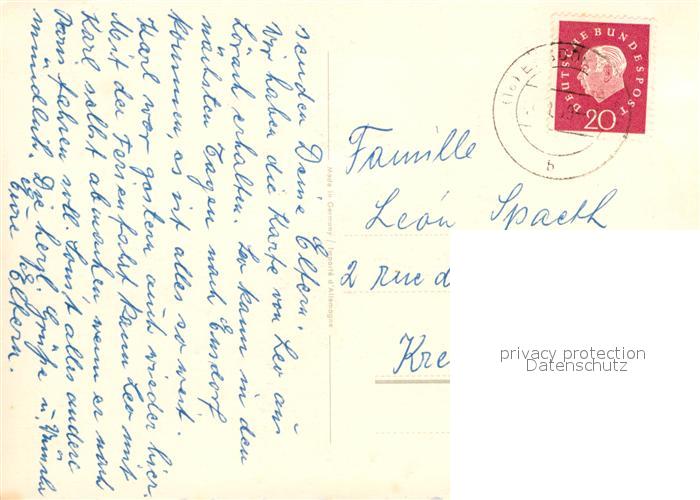 senden Deine Eltern.
Wir haben die Karte von Leo aus
Lörach erhalten. Leo kann in den
nächsten Tagen nach Ensdorf
kommen, es ist alles so weit.
Karl war gestern auch wieder hier.
Mit der Ferienfahrt kann Leo mit
Karl selbst abmachen wenn er nach
Paris fahren soll. Sonst alles andere
mündlich. Die herzl. Grüße u.
Eure Eltern.
Made in Germany / Importé d'Allemagne
DEUTSCHE BUNDESPOST
20
b
Famille
León Spaeth
2 rue d
Kre
privacy protection
Datenschutz